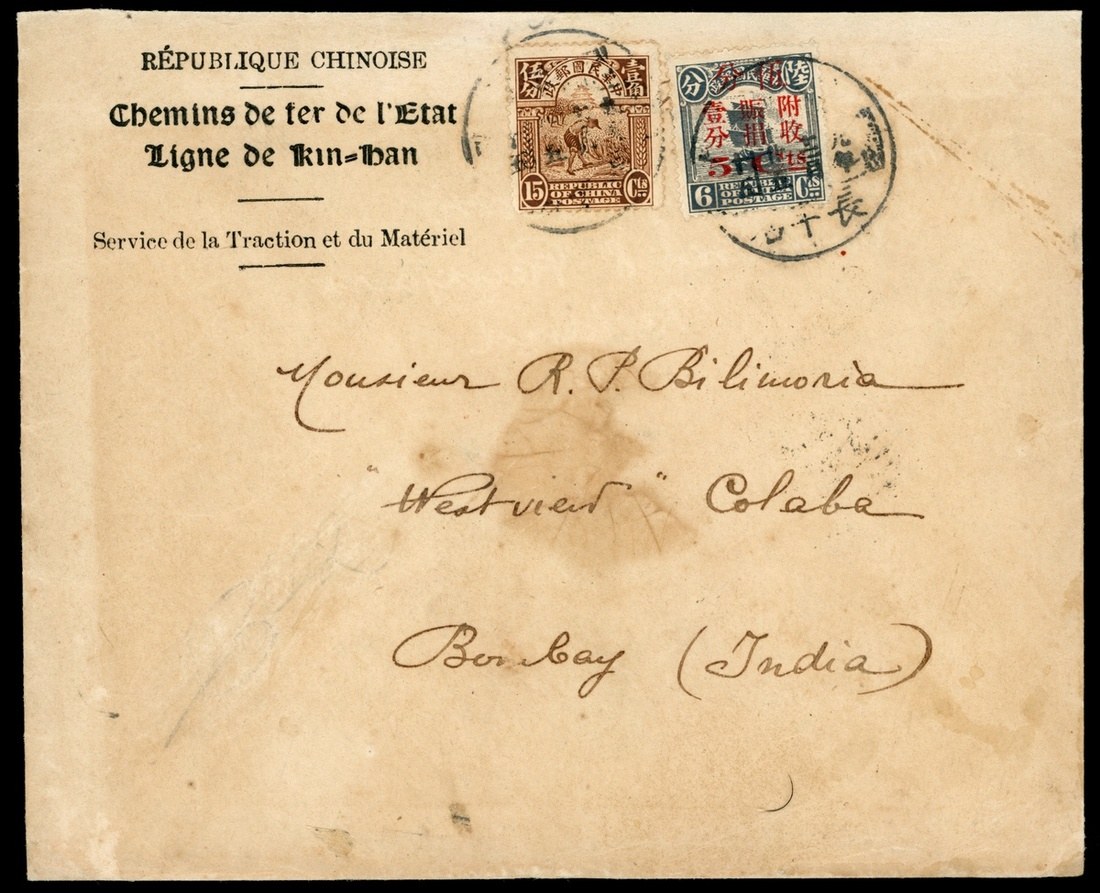 RÉPUBLIQUE CHINOISE
Chemins de fer de l'Etat
Ligne de Kin=Han
Service de la Traction et du Matériel
伍分 中華民國郵政 壹角
15 Cts
REPUBLIC
OF CHINA
POSTAGE
分 陸
附收
賑捐
壹分
5 Cts
6 Cts
REPUBLIC
OF CHINA
POSTAGE
長
Monsieur R. P. Bilimoria
"Westview" Colaba
Bombay (India)